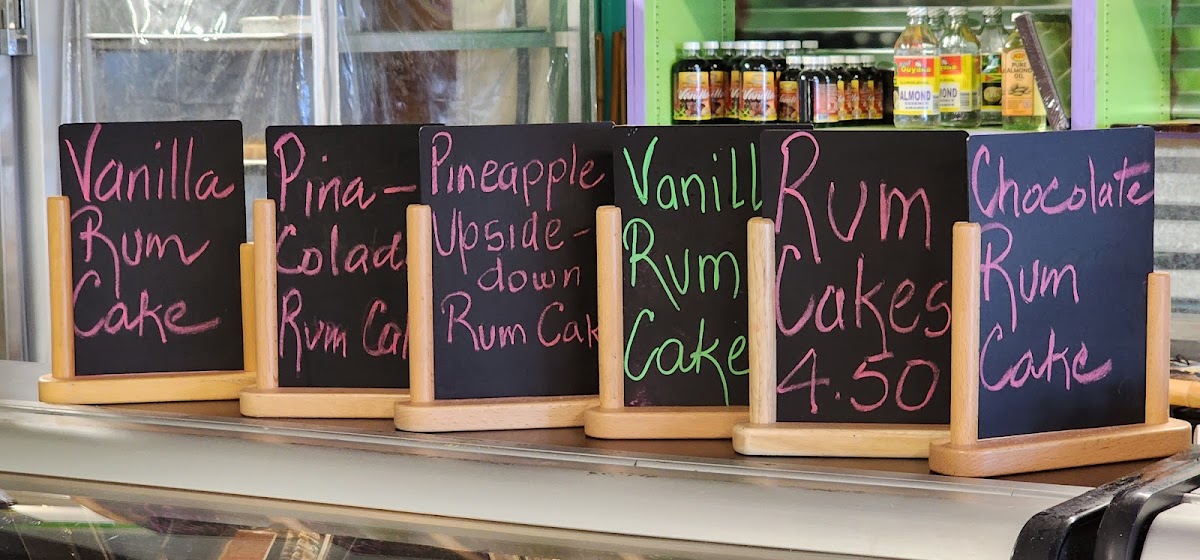 Vanilla
Rum
Cake
Pina-
Colad
Rum Ca
Pineapple
Upside-
down
Rum Cak
Vanill
Rum
Cake
Rum
Cakes
4.50
Chocolate
Rum
Cake
Vanilla
Vanilla
Guyana
ALMOND
MOND
PURE
ALMOND
OIL